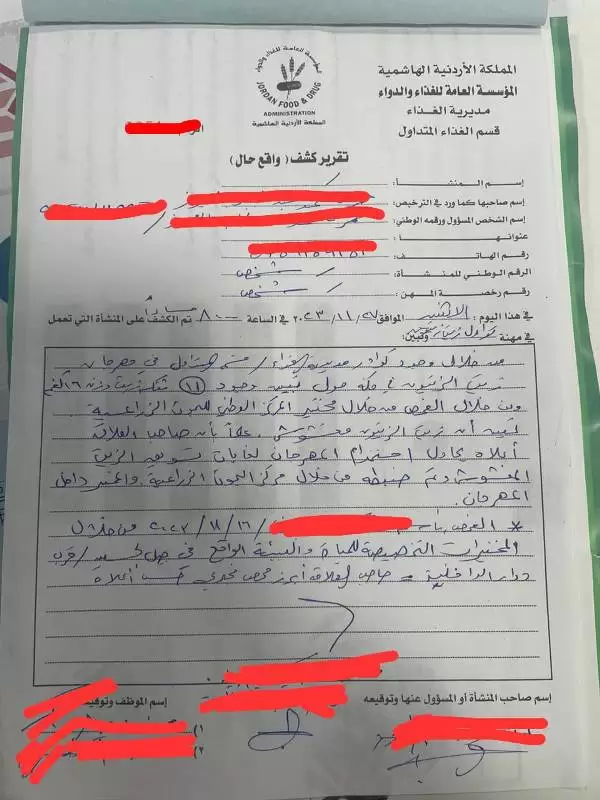 المملكة الأردنية الهاشمية
المؤسسة العامة للغذاء والدواء
مديرية الغذاء
قسم الغذاء المتداول
المؤسسة العامة للغذاء والدواء
JORDAN FOOD & DRUG
ADMINISTRATION
المملكة الأردنية الهاشمية
تقرير كشف ( واقع حال )
إسم المنشأة :
إسم صاحبها كما ورد في الترخيص :
إسم الشخص المسؤول ورقمه الوطني :
عنوانها :
رقم الهاتف :
الرقم الوطني للمنشأة : / شخص
رقم رخصة المهن : / شخص
في هذا اليوم : الاثنين الموافق ٢٠٢٣/١١/٢٧ في الساعة ٨:٠٠ مساءً تم الكشف على المنشأة التي تعمل
في مهنة وتبين :
من خلال وجود كوادر مديرية الغذاء / قسم المتداول في مهرجان
زيت الزيتون في مكة مول تبين وجود (١١) تنكة زيت وزن ١٦ كغم
ومن خلال الفحص من خلال مختبر المركز الوطني للبحوث الزراعية
تبين أن زيت الزيتون مغشوش، علماً بأن صاحب العلاقة
أعلاه يحاول استخدام المهرجان لغايات تسويق الزيت
المغشوش وتم ضبطه من خلال مركز البحوث الزراعية والمختبر داخل
المهرجان.
* الفحص ٢٠٢٣/١١/١٦ من خلال
المختبرات التخصصية للمياه والبيئة الواقع في جبل الحسين / قرب
دوار الداخلية - صاحب العلاقة أبرز فحص مخبري حسب أعلاه
إسم صاحب المنشأة أو المسؤول عنها وتوقيعه
إسم الموظف وتوقيعه
(١
(٢